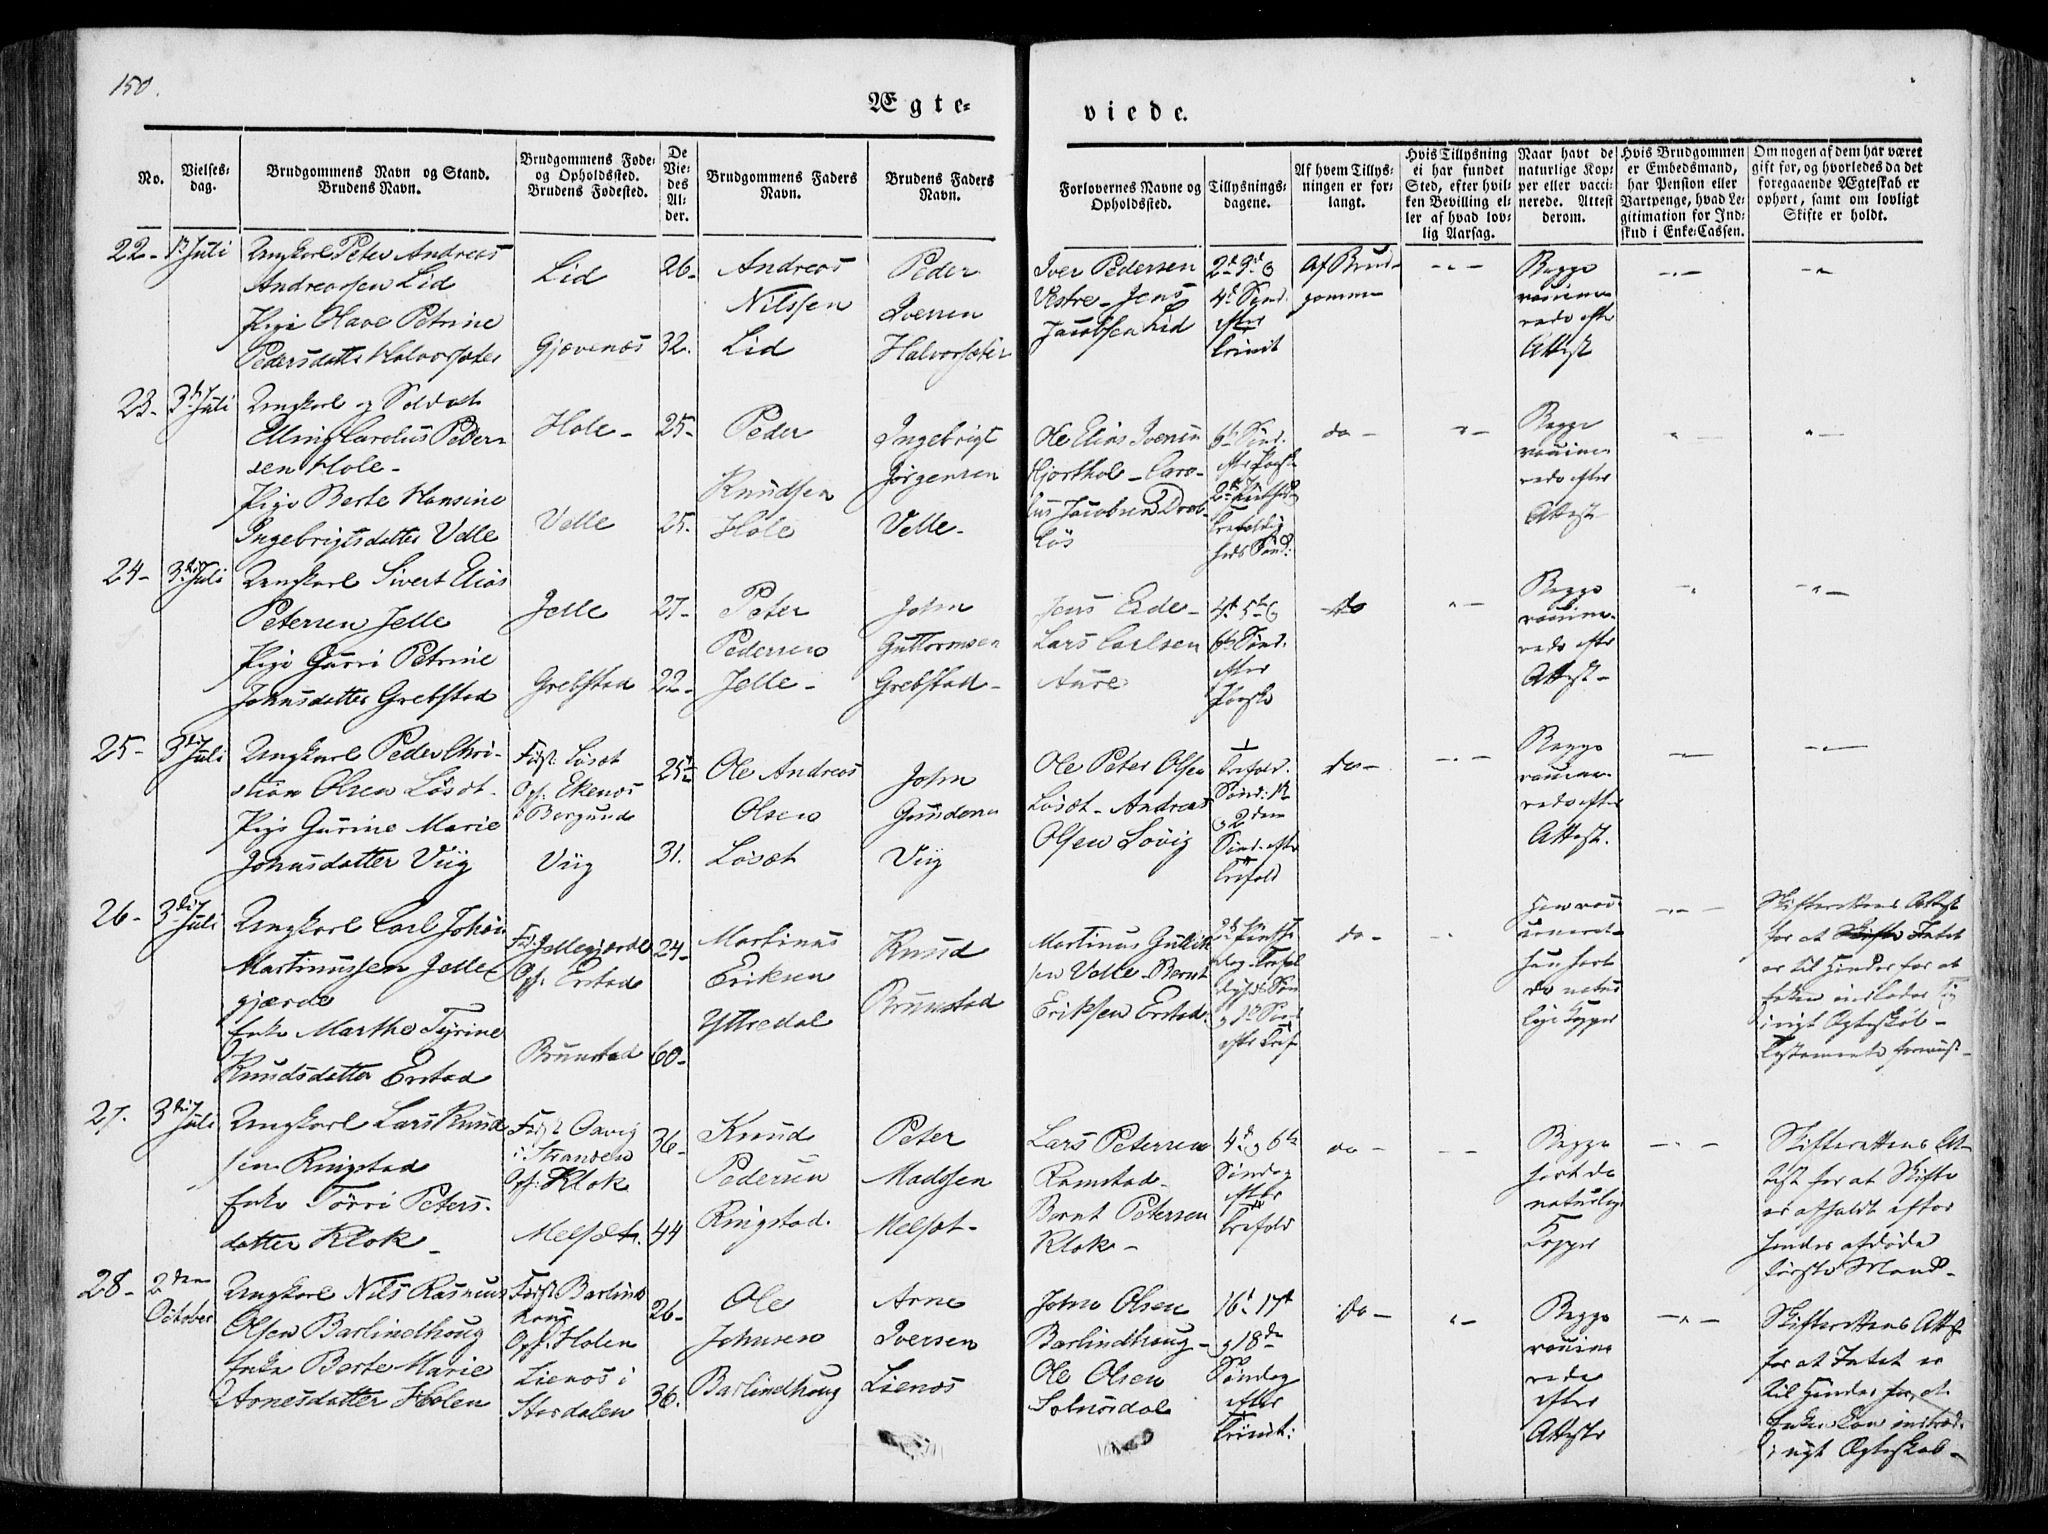 150.
Ægte-
viede.
No.
Vielses-
dag.
Brudgommens Navn og Stand.
Brudens Navn.
Brudgommens Føde-
og Opholdssted.
Brudens Fødested.
De
Vie-
des
Al-
der.
Brudgommens Faders
Navn.
Brudens Faders
Navn.
Forlovernes Navne og
Opholdssted.
Tillysnings-
dagene.
Af hvem Tillys-
ningen er for-
langt.
Hvis Tillysning
ei har fundet
Sted, efter hvil-
ken Bevilling el-
ler af hvad lov-
lig Aarsag.
Naar havt de
naturlige Kop-
per eller vacci-
nerede. Attest
derom.
Hvis Brudgommen
er Embedsmand,
har Pension eller
Vartpenge, hvad Le-
gitimation for Ind-
skud i Enke-Cassen.
Om nogen af dem har været
gift før, og hvorledes da det
foregaaende Ægteskab er
ophørt, samt om lovligt
Skifte er holdt.
22-
Juli
Ungkarl Peter Andreas
Andreassen Lid
Pige Olave Petrine
Pedersdatter Halvorsæter
Lid
Gjævenæs
26-
32.
Andreas
Nilssen
Lid
Peder
Iversen
Halvorsæter
Iver Pedersen
Vestre- Jens
Jacobsen Lid
4de Sønd:
efter
Trinit
Af Brud-
gommen
Begge
vaccine-
rede efter
Attest
23-
3die Juli
Ungkarl og Soldat
Elling Carolus Peder-
sen Hole-
Pige Berte Hansine
Ingebrigtsdatter Velle
Hole-
Velle
25-
25.
Peder
Knudsen
Hole
Ingebrigt
Jørgensen
Velle-
Ole Elias Iversen
Hjorthol- Caro-
lus Jacobsen Drab-
løs
6te Sønd.
efter Paaske
Trefoldig
heds Sønd:
do-
Begge
vaccine
rede efter
Attest
24-
3die Juli
Ungkarl Sivert Elias
Petersen Jelle
Pige Gurri Petrine
Johnsdatter Grebstad
Jelle
Grebstad
27-
22-
Peter
Pedersen
Jelle-
John
Guttormsen
Grebstad-
Jens Eide-
Lars Carlsen
Aure
4de 5te og
6te Sønd.
efter
Paaske
do
Begge
vaccine-
rede efter
Attest-
25-
3die Juli
Ungkarl Peder Chri-
stian Olsen Løset-
Pige Gurine Marie
Johnsdatter Viig
Født: Løset
Opf: Ekenæs
i Borgund
Viig
31.
Ole Andreas
Olsen
Løset
John
Viig
Ole Peter Olsen
Løset- Andreas
Olsen Løvig
Trefold.
Sønd: 1te
og 2den
Sønd: efter
Trefold
do-
Begge
vaccine-
rede efter
Attest.
26-
3die Juli
Ungkarl Carl Johan
Martinussen Jelle-
gjærde
Enke Marthe Tyrine
Knudsdatter Erstad
Fød. Jellegjærde
Opf. Erstad
Brunstad
24-
60-
Martinus
Eriksen
Yttredal
Knud
Brunstad
Martinus Gullik-
sen Velle- Bernt
Eriksen Erstad
do-
Skifterettens Attest
for at Intet
er til Hinder for at
Enken indlader sig
i nyt Ægteskab-
27.
3die Juli
Ungkarl Lars Knud
sen Ringstad
Enke Tørri Peters-
datter Klok-
Født Aavig
i Stranden
Opf: Klok
Melsæt.
36-
44
Knud
Pedersen
Ringstad.
Peter
Madssen
Melsæt-
Lars Petersen
Ramstad-
Bernt Petersen
Klok-
Søndag
efter
Trefold
do-
Begge
havt de
naturlige
Kopper
Skifterettens At-
test for at Skifte
er afholdt efter
hendes afdøde
første Mand-
28-
2den
October
Ungkarl Nils Rasmus
Olsen Barlindhoug
Enke Berte Marie
Arnesdatter Holen
Født Barlind
houg
Opf. Holen
Lienæs i
Stordalen
26-
36.
Ole
Johnsen
Barlindhoug
Arne
Iversen
Lienæs
John Olsen
Barlindhoug-
Ole Olsen
Solnørdal
16de 17de
og 18de
Søndag
efter
Trinit:
Do-
Begge
vaccine
rede
efter
Attester
Skifterettens Att
for at Intet er
til Hinder for, at
Enken kan indtræde
i nyt Ægteskab-